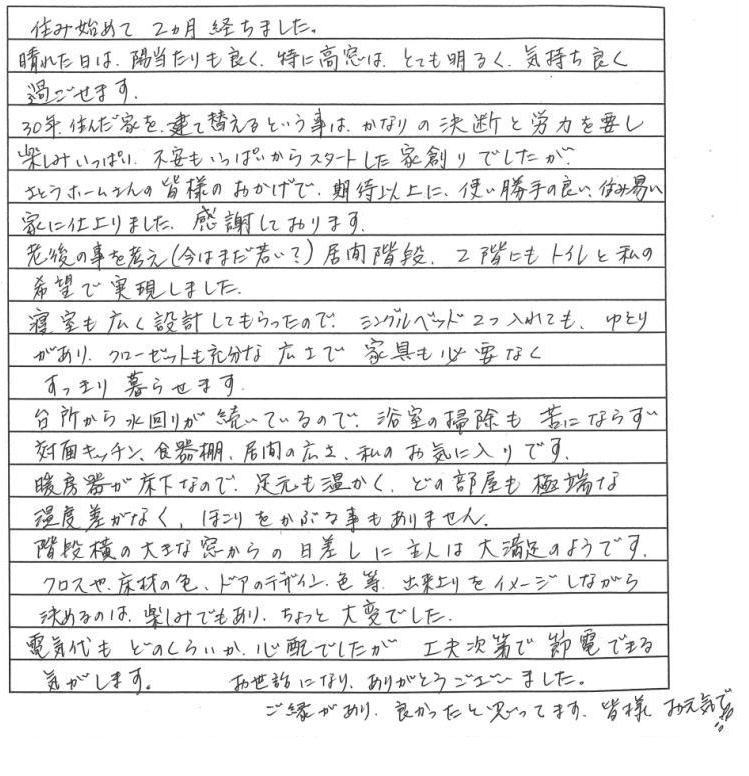 住み始めて 2ヵ月 経ちました。
晴れた日は、陽当たりも良く、特に高窓は、とても明るく、気持ち良く
過ごせます。
30年、住んだ家を、建て替えるという事は、かなりの決断と労力を要し
楽しみいっぱい、不安もいっぱいからスタートした家創りでしたが、
さとうホームさんの皆様のおかげで、期待以上に、使い勝手の良い、住み易い
家に仕上りました。感謝しております。
老後の事を考え(今はまだ若い?)居間階段、2階にもトイレと私の
希望で実現しました。
寝室も広く設計してもらったので、シングルベッド2つ入れても、ゆとり
があり、クローゼットも充分な広さで 家具も必要なく
すっきり暮らせます。
台所から水回りが続いているので、浴室の掃除も苦にならず
対面キッチン、食器棚、居間の広さ、私のお気に入りです。
暖房器が床下なので、足元も温かく、どの部屋も極端な
温度差がなく、ほこりをかぶる事もありません。
階段横の大きな窓からの日差しに主人は大満足のようです。
クロスや、床材の色、ドアのデザイン、色等、出来上りをイメージしながら
決めるのは、楽しみでもあり、ちょっと大変でした。
電気代もどのくらいか、心配でしたが 工夫次第で節電できる
気がします。 お世話になり、ありがとうございました。
ご縁があり、良かったと思ってます。皆様、お元気で